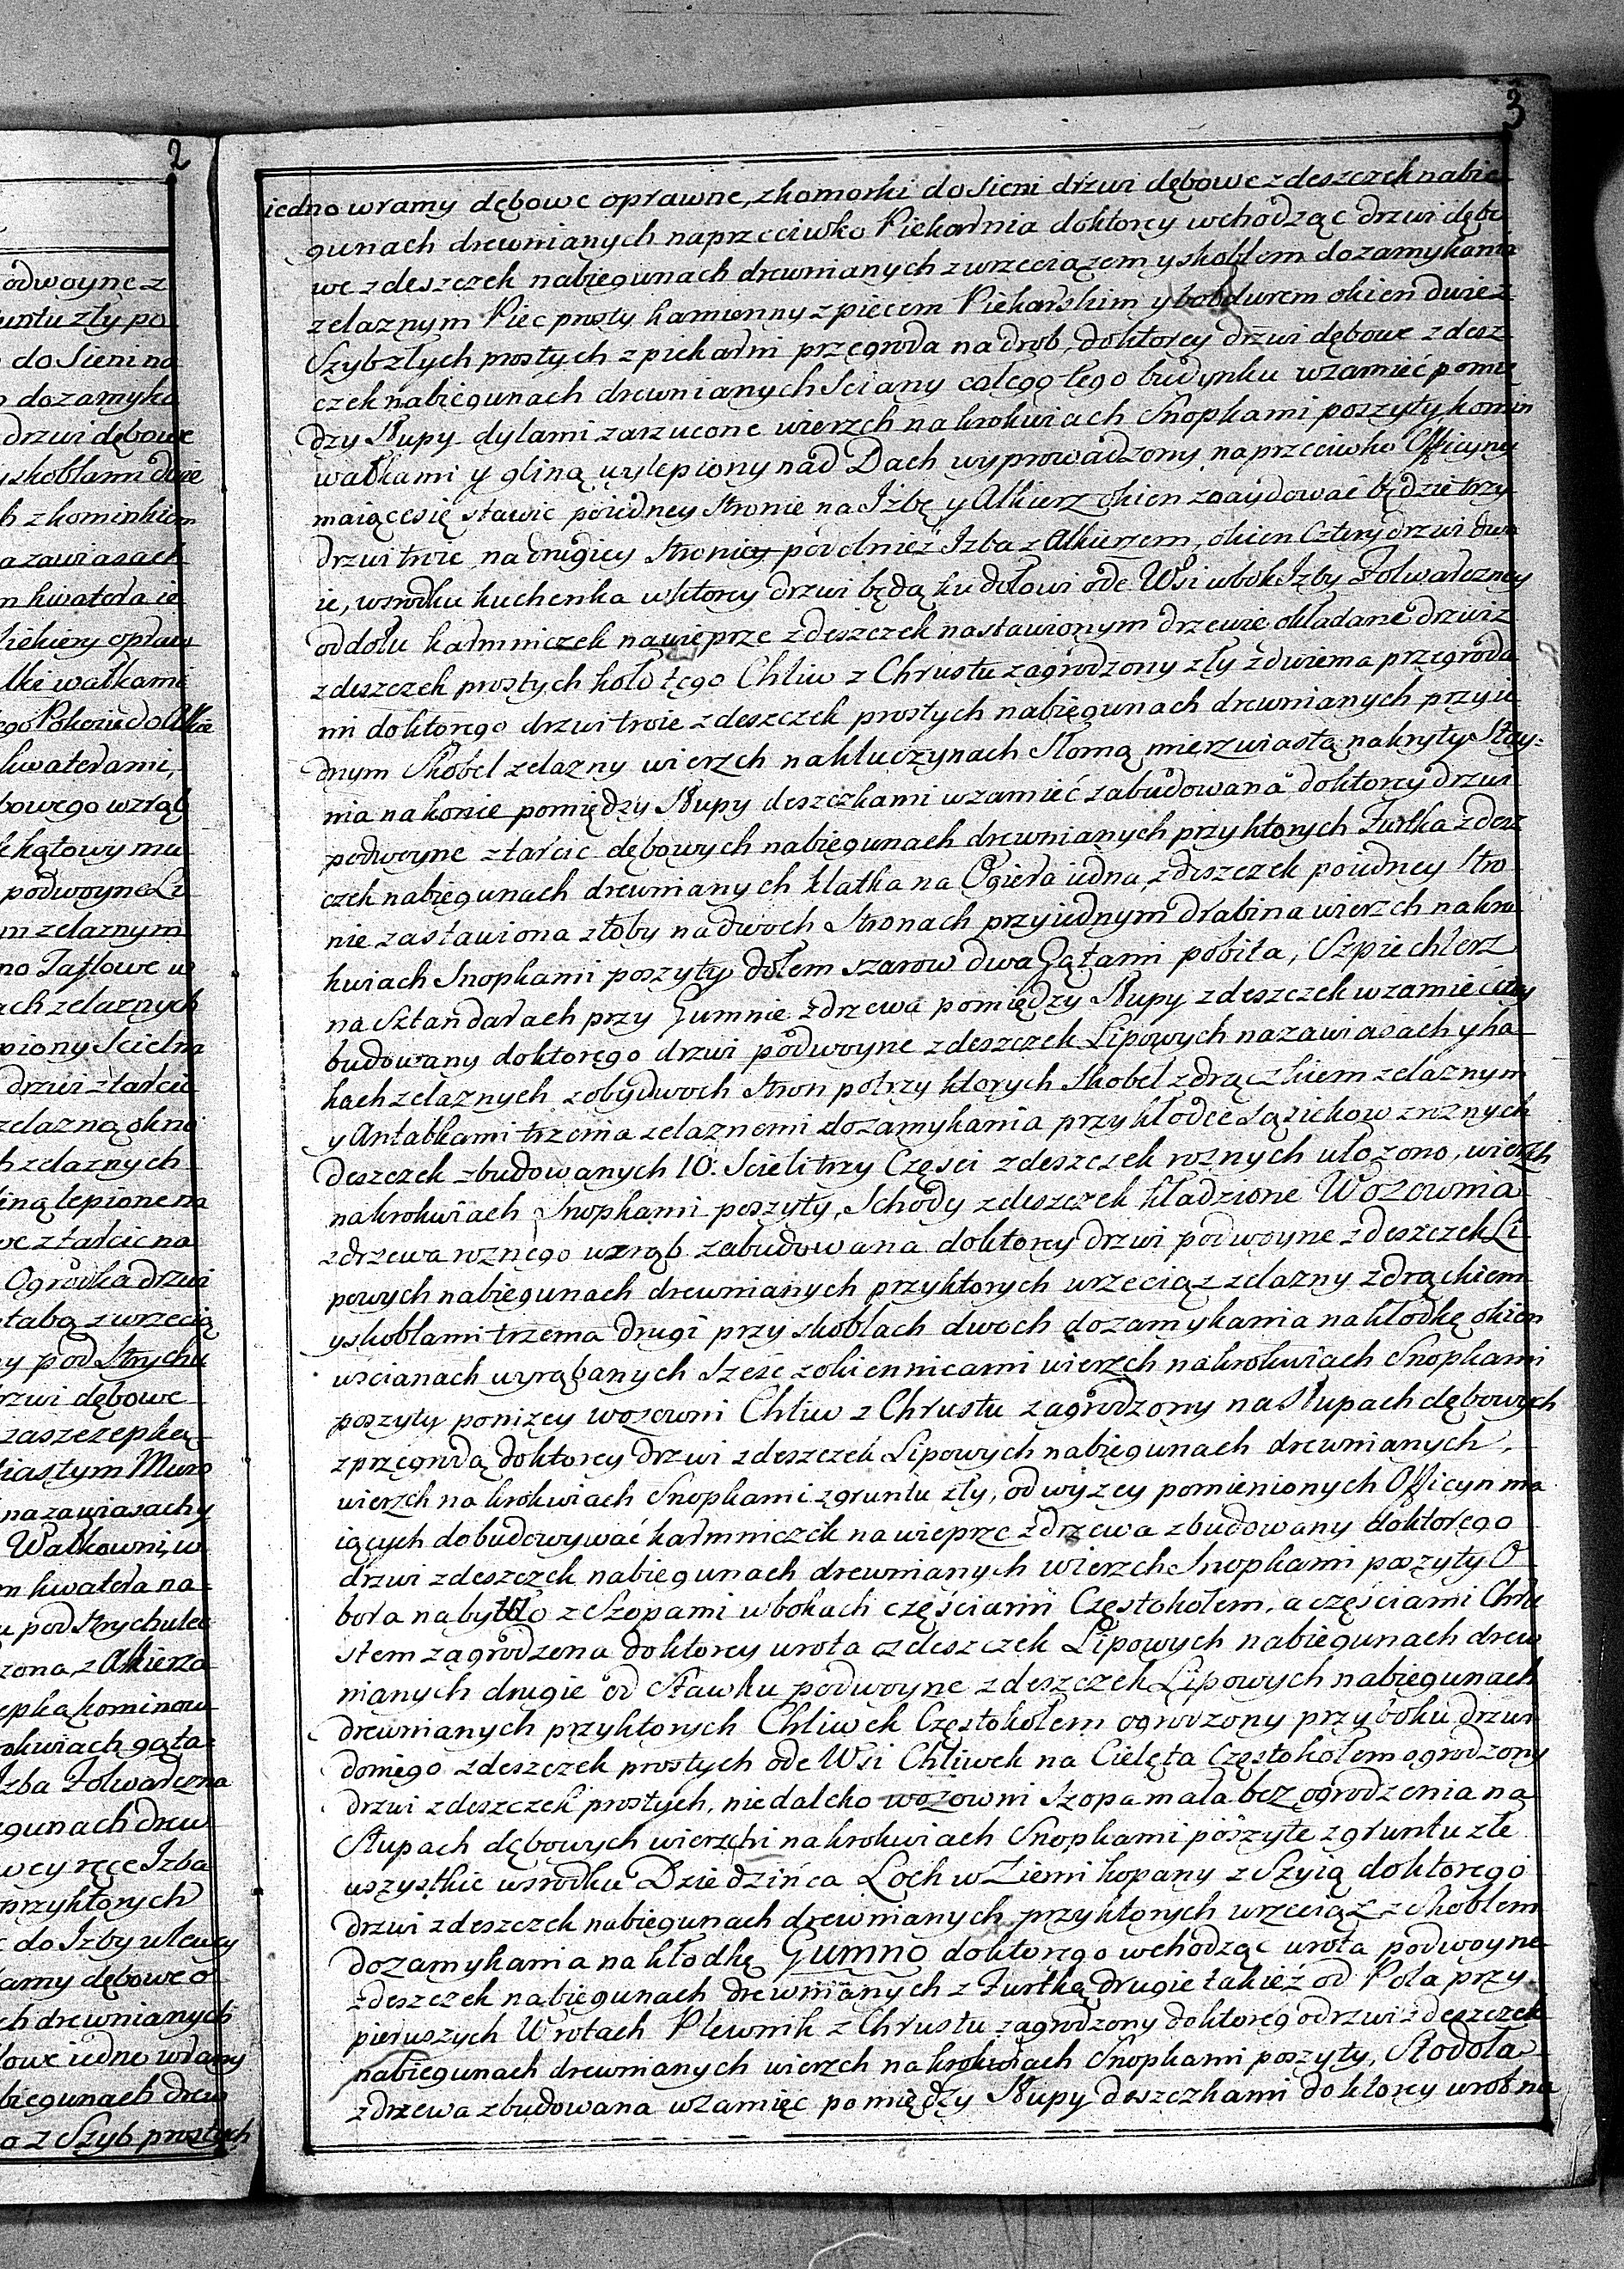 3
iedno w ramy dębowe oprawne, z komorki do Sieni drzwi dębowe z deszczek na bie
gunach drewnianych naprzeciwko Piekarnia do ktorey wchodząc drzwi dębo
we z deszczek na biegunach drewnianych z wrzeciązem y skoblem do zamykania
zelaznym Piec prosty kamienny z piecem Piekarskim y kabdurem okien dwie z
Szyb złych prostych z piekarni przegroda na drob, do ktorey drzwi dębowe z desz
czek na biegunach drewnianych Sciany całego tego budynku w zamieć pomię
dzy słupy dylami zarzucone wierzch na krokwiach Snopkami poszyty komin
wałkami y gliną wylepiony nad Dach wyprowadzony naprzeciwko Officyny
maiące się stawić po iedney stronie na Jzbę y Alkierz okien znaydować będzie trzy
drzwi troie, na drugiey stronie powolnież Jzba z Alkierzem, okien Cztery drzwi dwo
ie, w srodku kuchenka w ktorey drzwi będą ku dołowi ode Wsi w bok Jzby Folwarczney
od dołu karmniczek na wieprze z deszczek na stawionym drzewie okładane drzwi z
z deszczek prostych koło tego Chliw z Chrustu zagrodzony zły z dwiema przegroda
mi do ktorego drzwi troie z deszczek prostych na biegunach drewnianych przy ie
dnym Skobel zelazny wierzch na kluczynach słomą mierzwiastą nakryty Stay:
nia na konie pomiędzy słupy deszczkami w zamieć zabudowana do ktorey drzwi
podwoyne z tarcic dębowych na biegunach drewnianych przy ktorych Furtka z desz
czek na biegunach drewnianych klatka na Ogiera iedna z deszczek po iedney stro
nie zastawiona złoby na dwoch Stronach przy iednym drabina wierzch na kro
kwiach Snopkami poszyty dołem szarow dwa Gątami pobita, Szpiechlerz
na Sztandarach przy Gumnie z drzewa pomiędzy słupy z deszczek w zamieć wy
budowany do ktorego drzwi podwoyne z deszczek Lipowych na zawiasach y ha
kach zelaznych z obydwoch stron po trzy ktorych skobel z drączkiem zelaznym
y Antabkami trzema zelaznemi do zamykania przy kłodce sąsiekow z roznych
deszczek zbudowanych 10. Scieli trzy Częsci z deszczek roznych ułozono, wierzch
na krokwiach Snopkami poszyty, Schody z deszczek kładzione Wozownia
z drzewa roznego w zrąb zabudowana do ktorey drzwi podwoyne z deszczek Li
powych na biegunach drewnianych przy ktorych wrzeciąz zelazny z drąckiem
y skoblami trzema drugi przy skoblach dwoch do zamykania na kłodkę okien
w scianach wyrąbanych szesc z okiennicami wierzch na krokwiach Snopkami
poszyty ponizey wozowni Chliw z Chrustu zagrodzony na słupach dębowych
z przegrodą do ktorey drzwi z deszczek Lipowych na biegunach drewnianych,
wierzch na krokwiach Snopkami z gruntu zły, od wyzey pomienionych Officyn ma
iących dobudowywać karmniczek na wieprze z drzewa zbudowany do ktorego
drzwi z deszczek na biegunach drewnianych wierzch Snopkami poszyty O
bora na bydło z Szopami w bokach częściami Częstokołem, a częściami Chru
stem zagrodzona do ktorey wrota z deszczek Lipowych na biegunach drew
nianych drugie od Stawku podwoyne z deszczek Lipowych na biegunach
drewnianych przy ktorych Chliwek Częstokołem ogrodzony przy boku drzwi
do niego z deszczek prostych ode Wsi Chliwek na Cielęta Częstokołem ogrodzony
drzwi z deszczek prostych, niedaleko wozowni Szopa mała bez ogrodzenia na
Słupach dębowych wierzchi na krokwiach Snopkami poszyte z gruntu złe
wszystkie w srodku Dziedzińca Loch w Ziemi kopany z Szyią do ktorego
drzwi z deszczek na biegunach drewnianych przy ktorych wrzeciąz z skoblem
do zamykania na kłodkę Gumno do ktorego wchodząc wrota podwoyne
z deszczek na biegunach drewnianych z Furtką drugie takież od Pola przy
pierwszych Wrotach Plewnik z Chrustu zagrodzony do ktorego drzwi z deszczek
na biegunach drewnianych wierzch na krokwiach Snopkami poszyty, Stodoła
z drzewa zbudowana w zamięc pomiędzy słupy deszczkami do ktorey wrot na